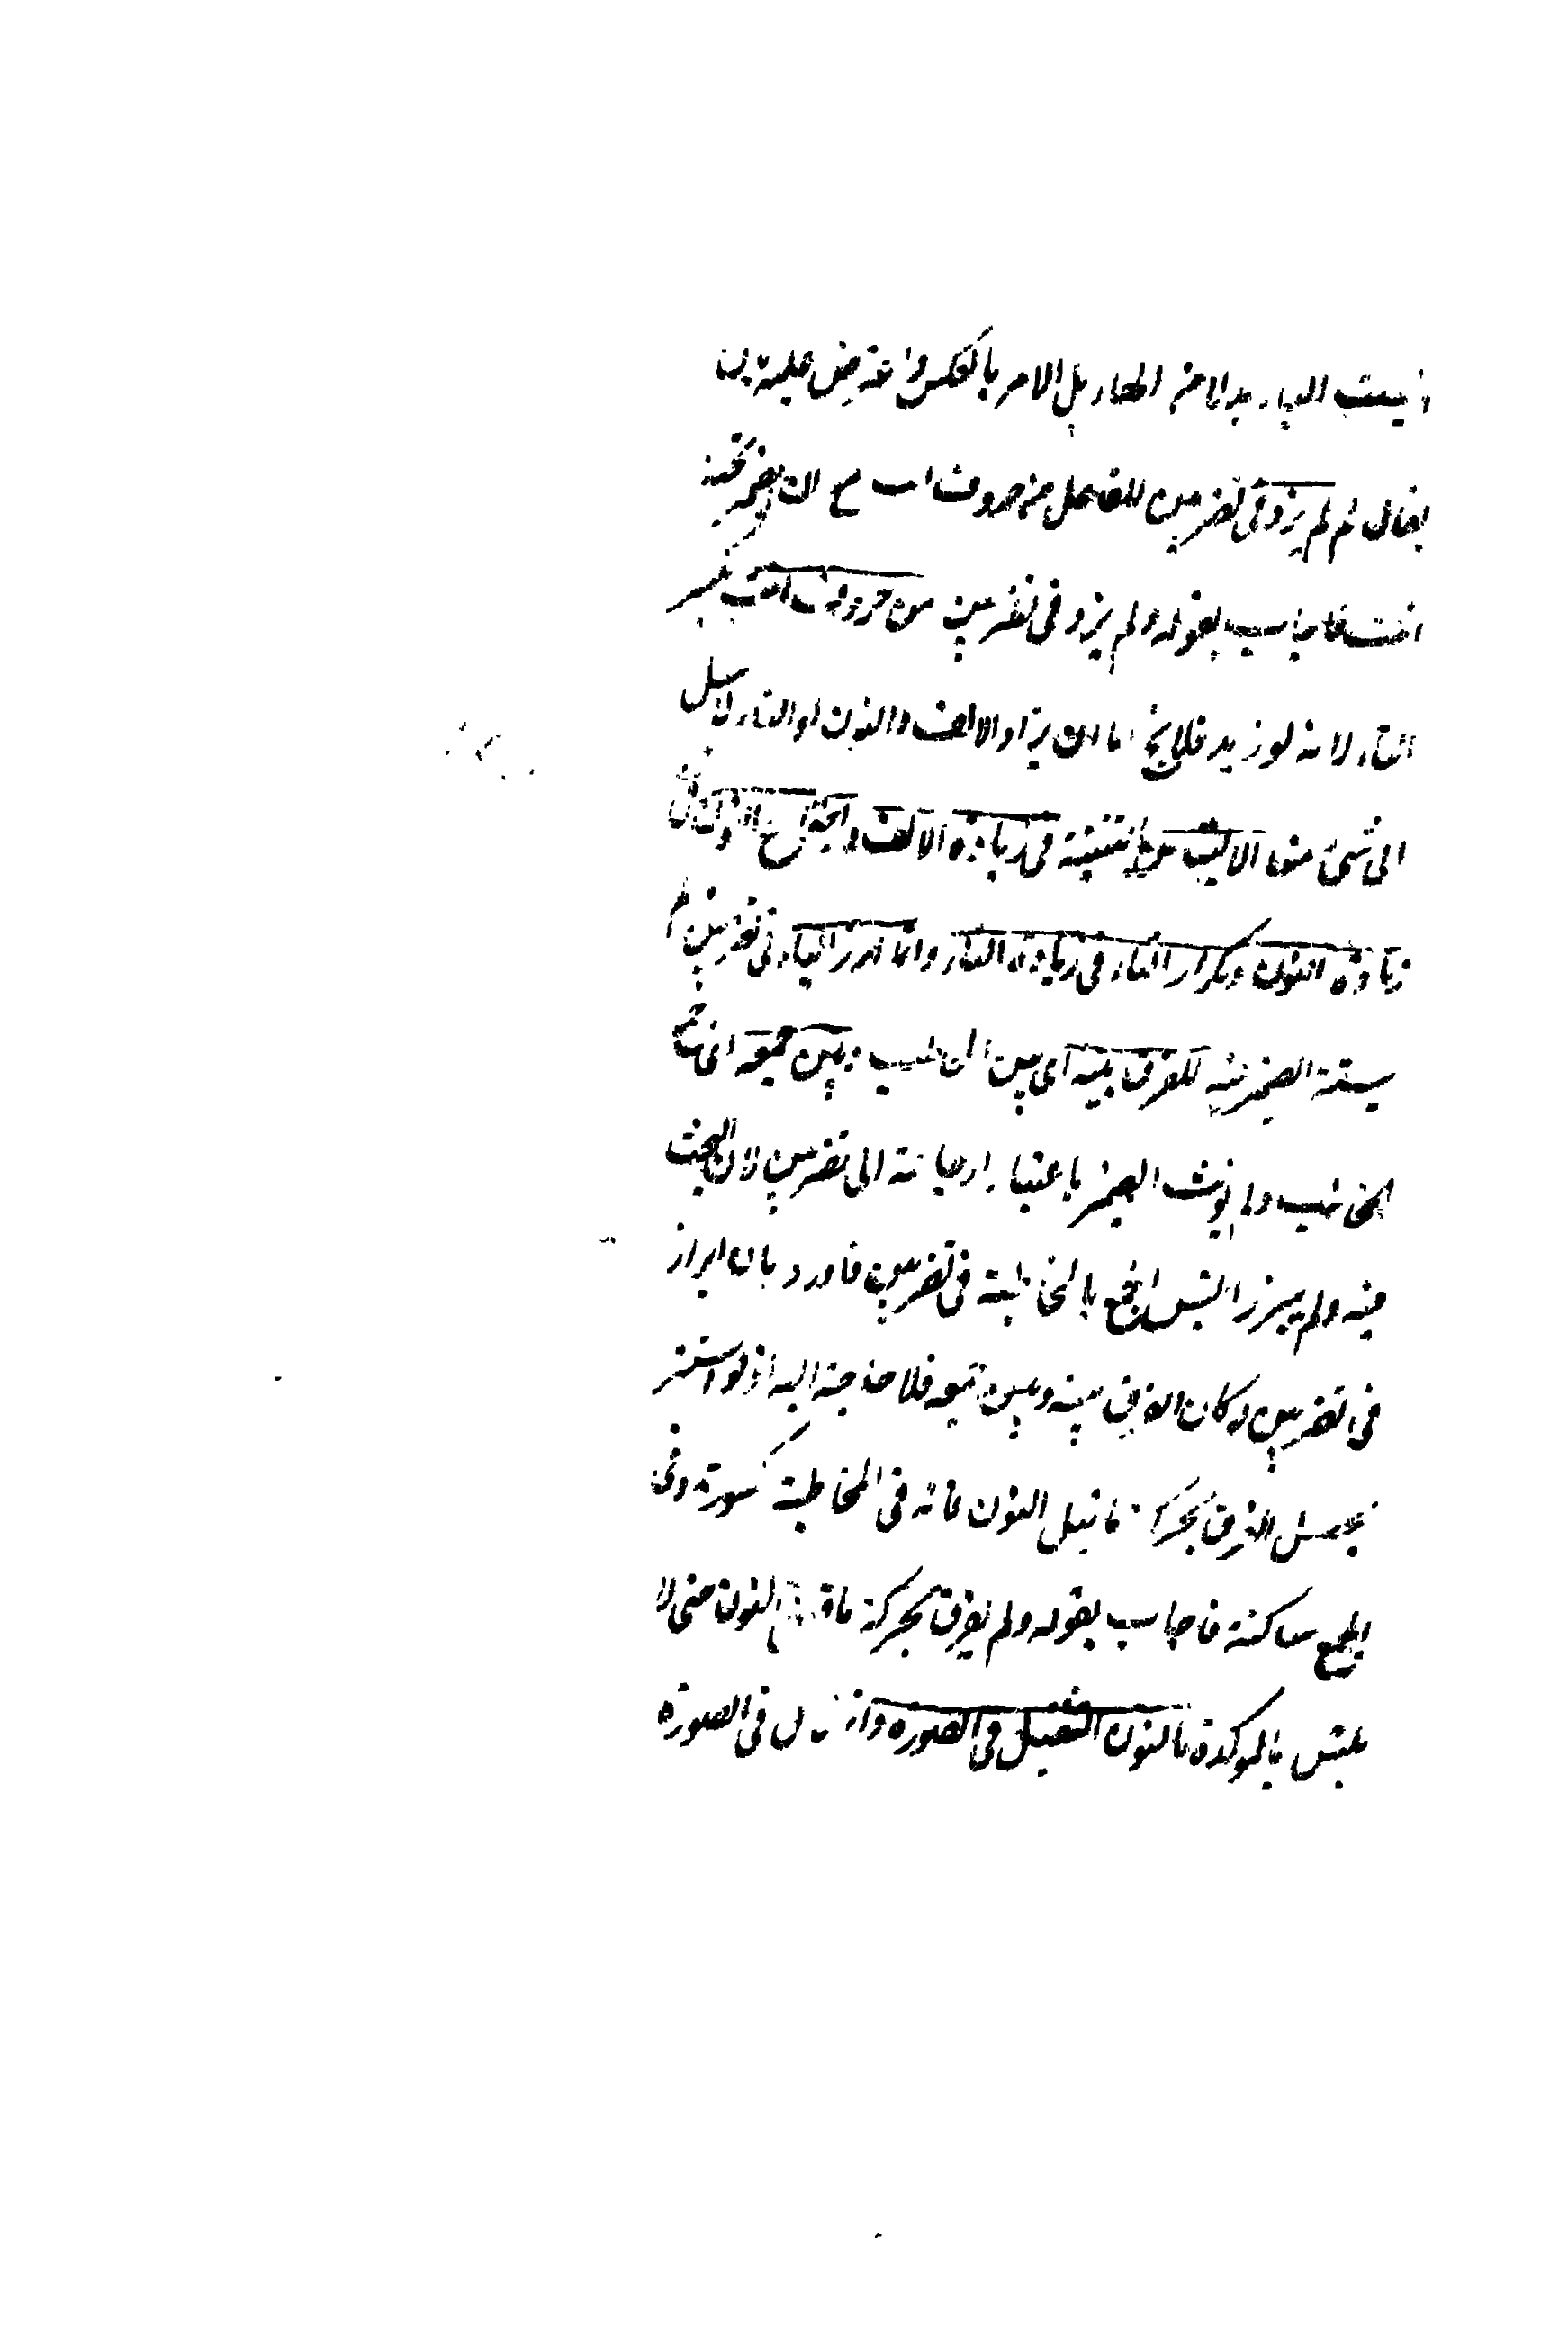 ليست الياء بدلا من الهاء بل الامر بالعكس واعترض عليه بان
يقال لم لم يزد في تضربين للفاعل من حروف انت
انت فاجاب بقوله ولم يزد في تضربين من حروف انت
التاء لانه لو زيد فلا يخ اما ان يزاد الالف والنون او التاء لا سبيل
الى شئ منها لالتباس بالتثنية في زيادة الالف واجتماع النونين في
زيادة النون وتكرار التاء في زيادة التاء وانما ابرز الياء في تضربين لم
يستتر الضمير فيه للفرق بينه اى بين المخاطب وبين جمعه
المخاطب ولم يؤنث الضمير باعتبار ارجاعه الى تضربين لان البحث
فيه ولم يبرز التبس الجمع بالمخاطبة في تضربين فاورد بان ابراز
في تضربين لو كان للفرق بينه وبين جمعه فلا حاجة اليه اذ لو استتر
يحصل الفرق بحركة ما قبل النون فانه في المخاطبة مكسورة وفي
الجمع ساكنة فاجاب بقوله ولم يفرق بحركة ما قبل النون حتى لا
يلتبس بالمؤكدة بالنون الثقيلة في الصورة وان قال في الصورة